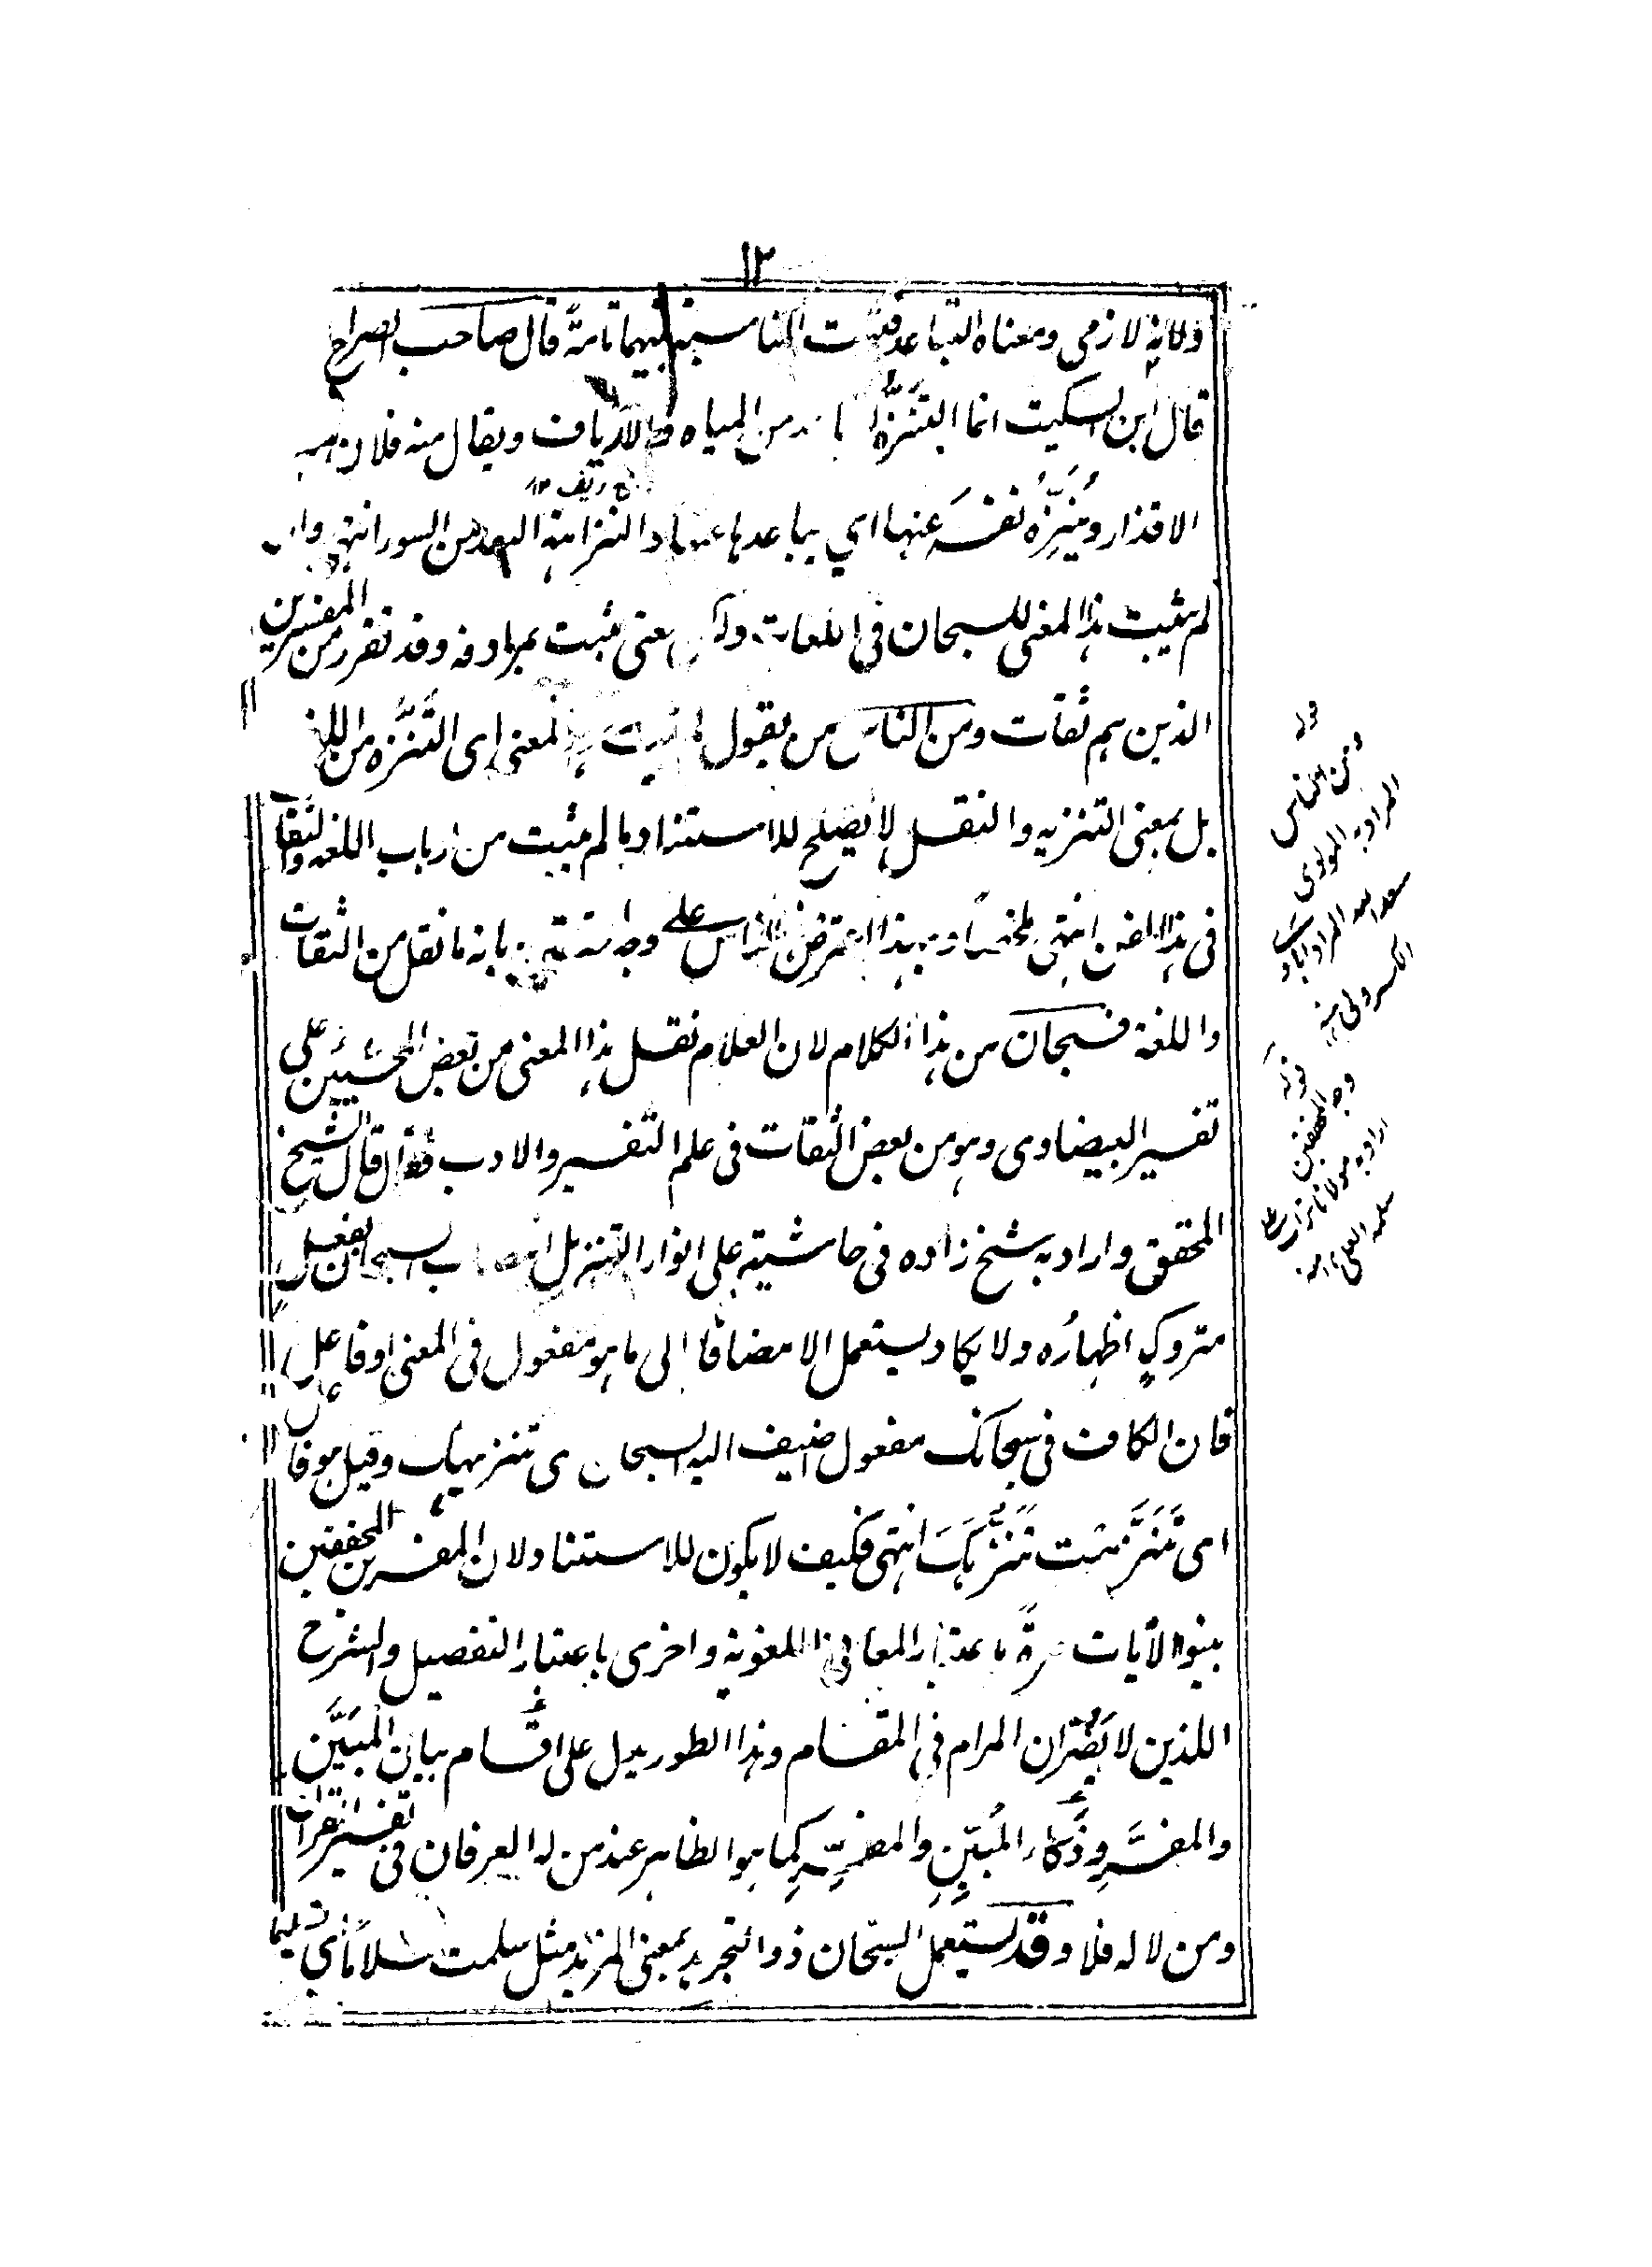 ١٢
ولانه لازمى ومعناه التباعد فثبت المناسبة بينهما تامةً قال صاحب الصراح
قال ابن السكيت انما التنزُّه من المياه والارياف ويقال منه فلان
الاقذار ويُنزِّهُ نفسَه عنها اى يباعدها عنها والنزاهة البعد من السور انتهى وان
جمع ريف ١٢
لم يثبت هذا المعنى للسبحان فى اللغات معنى ثبت بمرادفه وقد تقرر من المفسرين
الذين هم ثقات ومن الناس من يقول هذا المعنى اى التَّنَزُّه من
بل بمعنى التنزيه والنقل لا يصلح للاستناد ما لم يثبت من ارباب اللغة والثقات
فى هذا الفن انتهى ملخصًا وبهذا اعترض الناس على بانه ما نقل من الثقات
واللغة فسبحان من هذا الكلام لان العلام نقل هذا المعنى من بعض المحشيين على
تفسير البيضاوى وهو من بعض الثقات فى علم التفسير والادب قال الشيخ
المحقق واراد به شيخ زاده فى حاشيته على انوار التنزيل سبحان بفعل
متروكٍ اظهارُه ولا يكاد يستعمل الا مضافًا الى ما هو مفعول فى المعنى او فاعل
فان الكاف فى سبحانك مفعول اضيف اليه السبحان اى تنزيهك وقيل هو فاعل
اى تَنَزَّهْتَ تَنَزُّهَكَ انتهى فكيف لا يكون للاستناد لان المفسرين المحققين
بينوا الآيات مرةً باعتبار المعانى اللغوية واخرى باعتبار التفصيل والشرح
اللذين لا يَضُرَّان المرام فى المقام وهذا الطور يدل على اقسام بيان المُبَيَّن
والمفسَّرِ وذكاء المُبَيِّنِ والمفسِّرِ كما هو الظاهر عند من له العرفان فى تفسير القرآن
ومن لا له فلا وقد يستعمل السبحان ذو التجريد بمعنى المزيد مثل سلمت سلامًا اى تسليما
ومن الناس
المراد به المولوى
سعد الله المرادآبادى
قوله
وجه
اراد به مولانا تراب
سلمه العلى منه